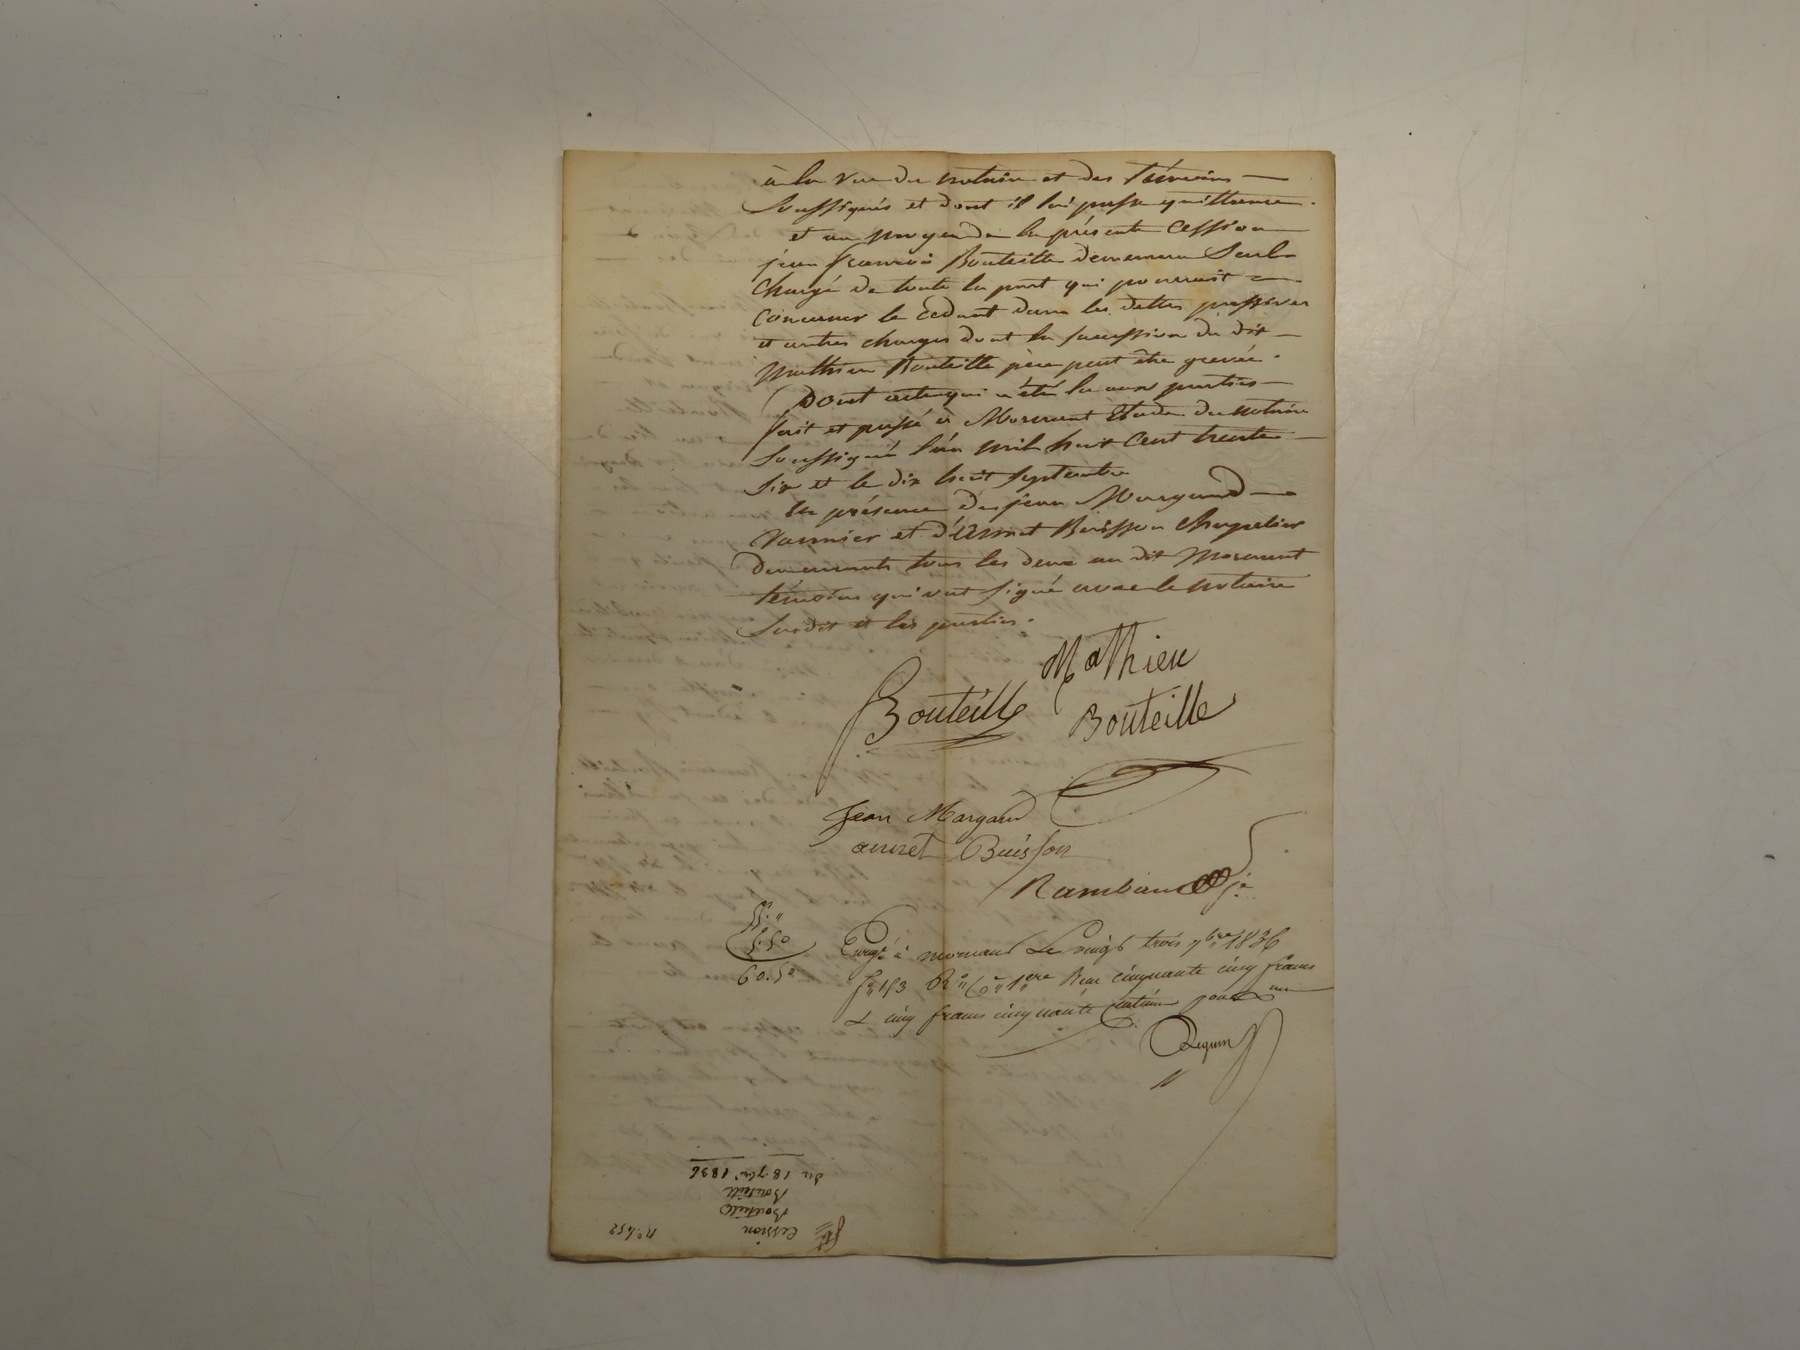 à la vue du notaire et des témoins
soussignés et dont il lui passe quittance.
et au moyen de la présente cession
jean françois Bouteille demeurera seul
chargé de toute la part qui pourrait
concerner le cédant dans les dettes passives
et autres charges dont la succession du dit
Mathieu Bouteille père peut être grevée.
Dont acte qui a été lu aux parties
fait et passé à Mornant Etude du notaire
soussigné l'an mil huit cent trente
six et le dix huit septembre
En présence de jean Margand
vannier et d'Annet Buisson chapelier
demeurants tous les deux au dit Mornant
témoins qui ont signé avec le notaire
susdit et les parties.
Mathieu
Bouteille Bouteille
Jean Margand
annet Buisson
Rambaud je
55. "
5.50
60.50
Enregé à mornant Le vingt trois 7bre 1836
fo 153 Ro Ce 1ere Reçu cinquante cinq francs
& cinq francs cinquante centimes pour
Deguin
fte
Cession
Bouteille
Bouteille
du 18 7bre 1836
No 452